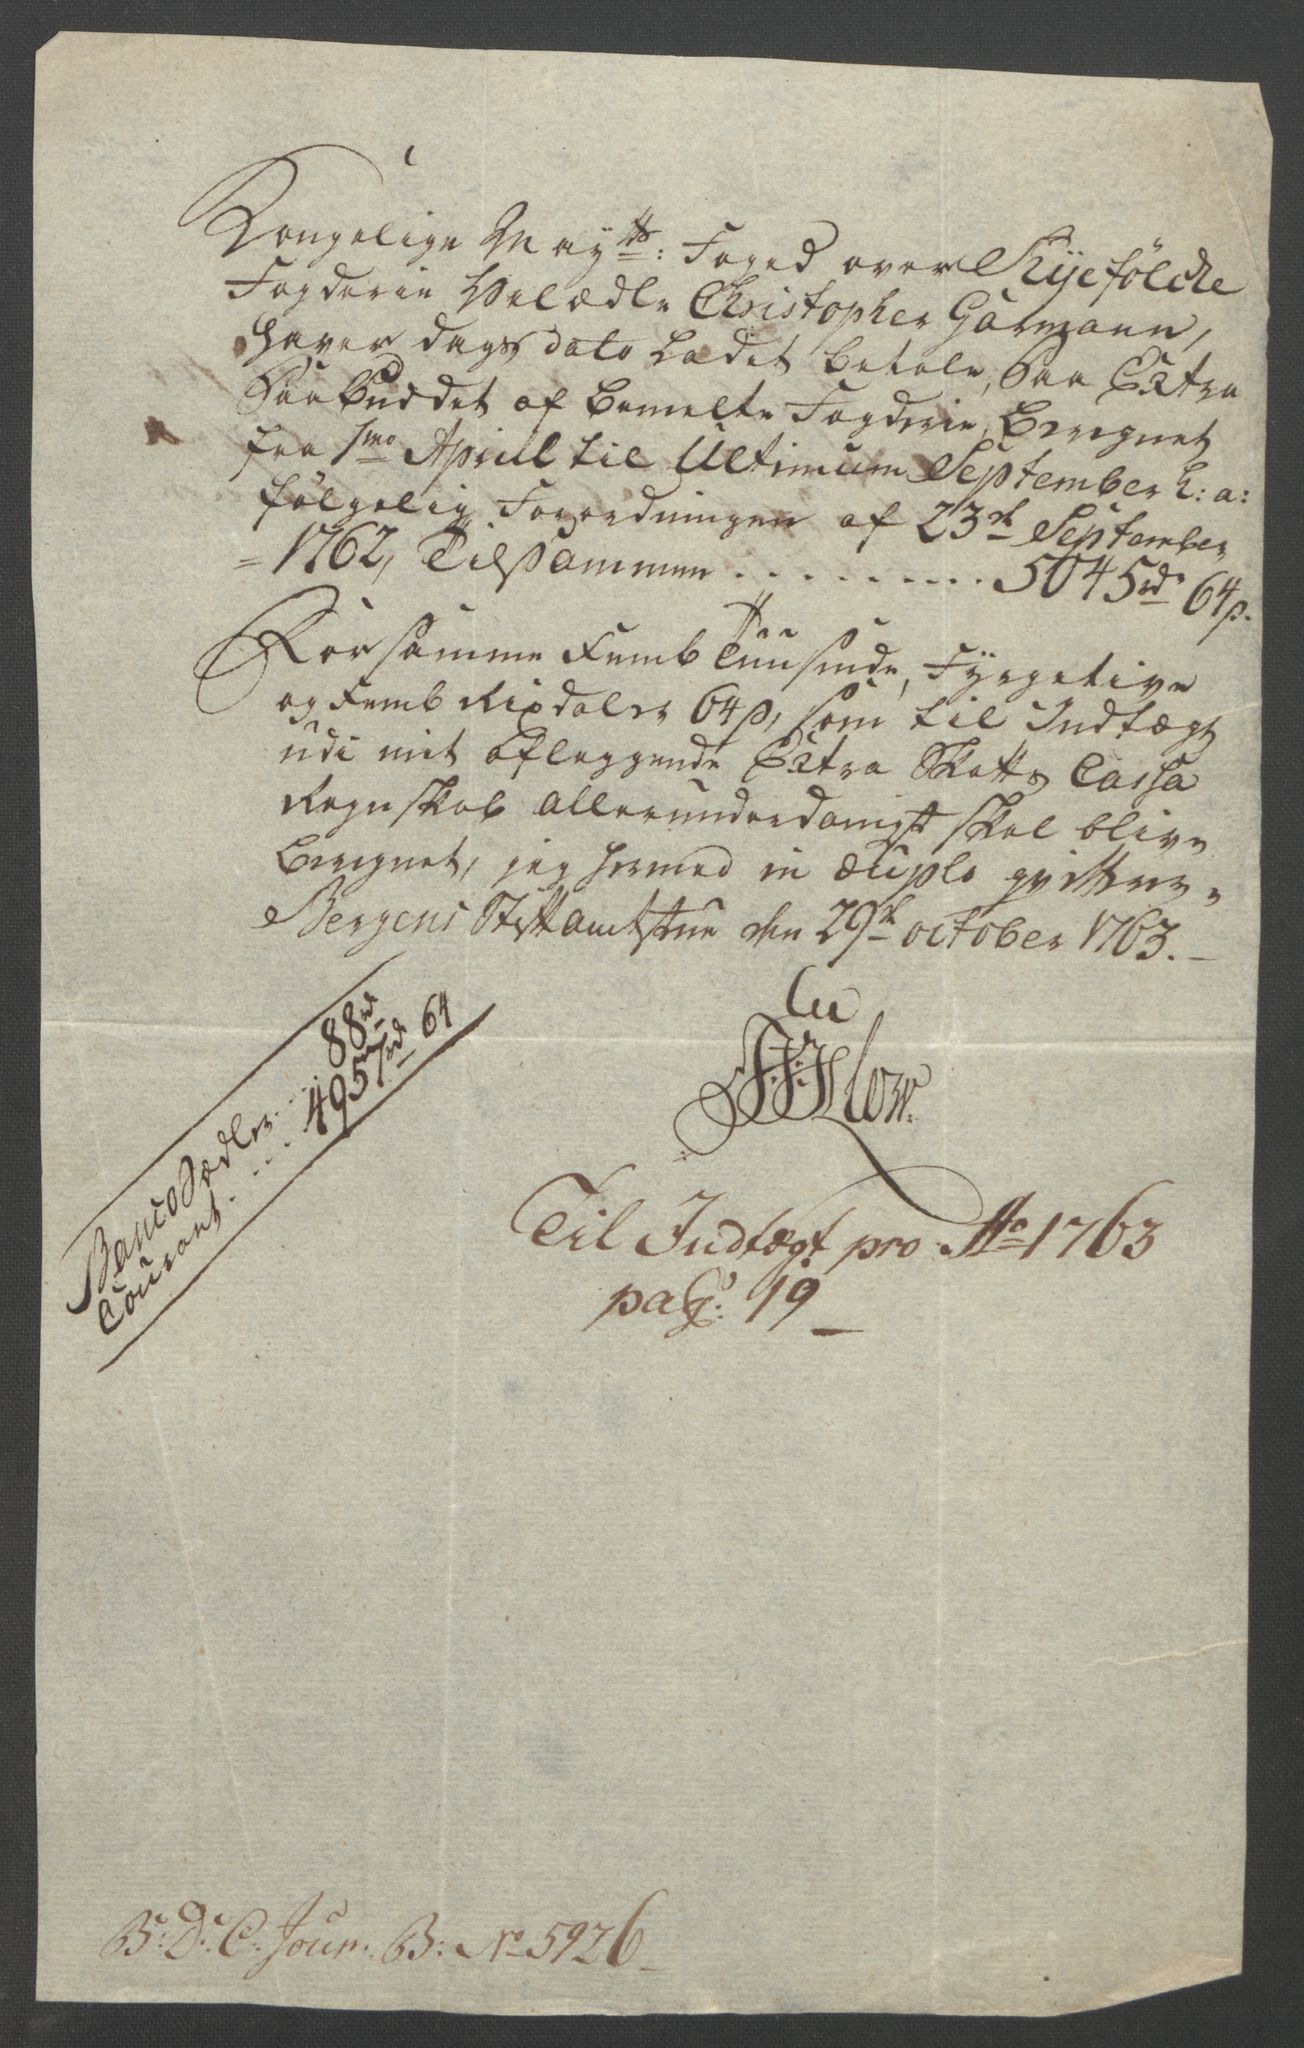 Kongelige May\ts: Foged over Ryefölcke
Fogderie Velædle Christopher Garmann,
haver dags dato ladet betale, Paa Extra
Paabuddet af bemelte Fogderie, beregnet
fra 1mo Aprill til Ultimum September h: a:
følgelig Forordningen af 23de September
=1762, Tilsammen . . . . . . . . . . 5045rd. 64s.
For samme Femb Tuusinde, Fyrgetive
og Femb Rixdaler 64s, som til Indtægt
udi mit aflæggende Extra Skatts Cassa
Regnskab allerunderdanigst skal blive
beregnet, jeg hermed in duplo qvitterer,
Bergens Stiftamtstue den 29de october 1763.
Banco Sedler . . . 88rd
Courant . . . . 4957rd 64
Til Indtægt pro Ao 1763
pag: 19
B: D: C. Jour. B: No 5926